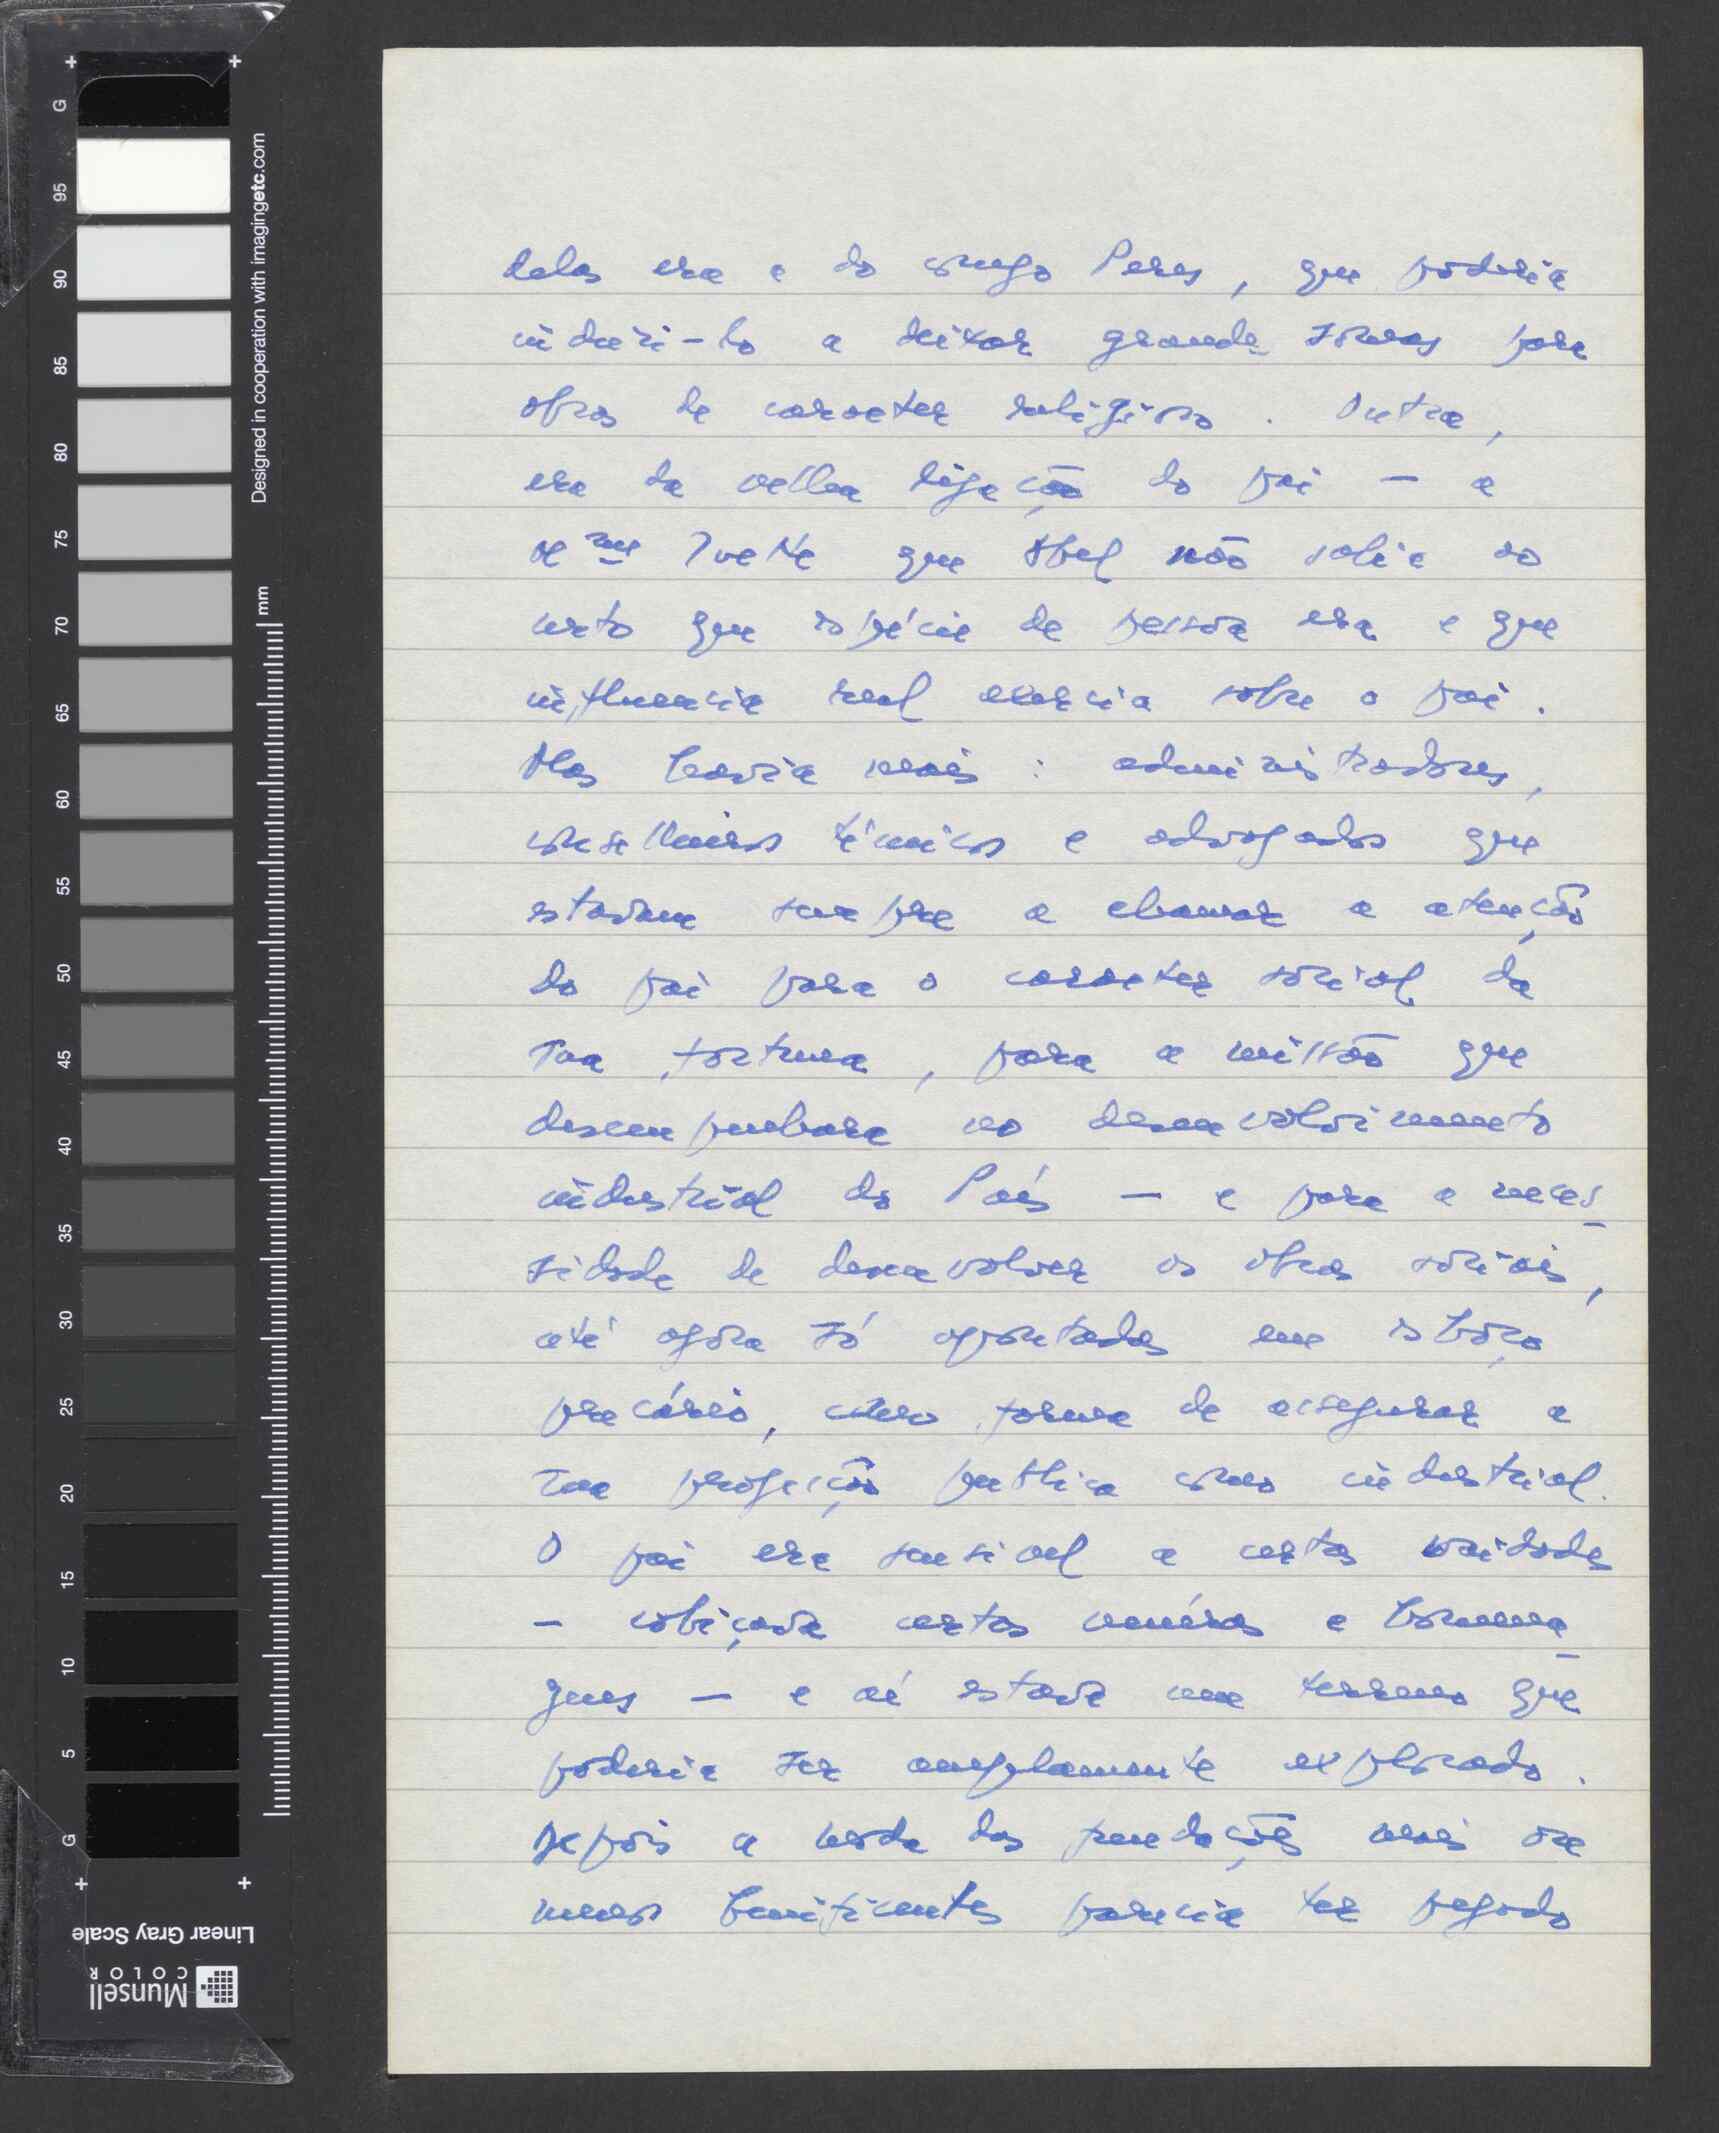 delas era a do conego Peres, que poderia
induzi-lo a deixar grandes somas para
obras de caracter religioso. Outra,
era da velha ligação do pai — a
Mme Ivette que Abel não sabia ao
certo que espécie de pessoa era e que
influencia real exercia sobre o pai.
Mas havia mais: administradores,
conselheiros técnicos e advogados que
estavam sempre a chamar a atenção
do pai para o caracter social da
sua fortuna, para a missão que
desempenhara no desenvolvimento
industrial do País — e para a neces-
sidade de desenvolver as obras sociais,
até agora só apontadas em esboço
precário, como forma de assegurar a
sua projecção publica como industrial.
O pai era sensivel a certas vaidades
— cobiçava certas veneras e homena-
gens — e aí estava um terreno que
poderia ser amplamente explorado.
Depois a moda das fundações mais ou
menos beneficentes parecia ter pegado
G 95 90 85 80 75 70 65 60 55 50 45 40 35 30 25 20 15 10 5 G
mm
Designed in cooperation with imagingetc.com
Linear Gray Scale
Munsell
COLOR